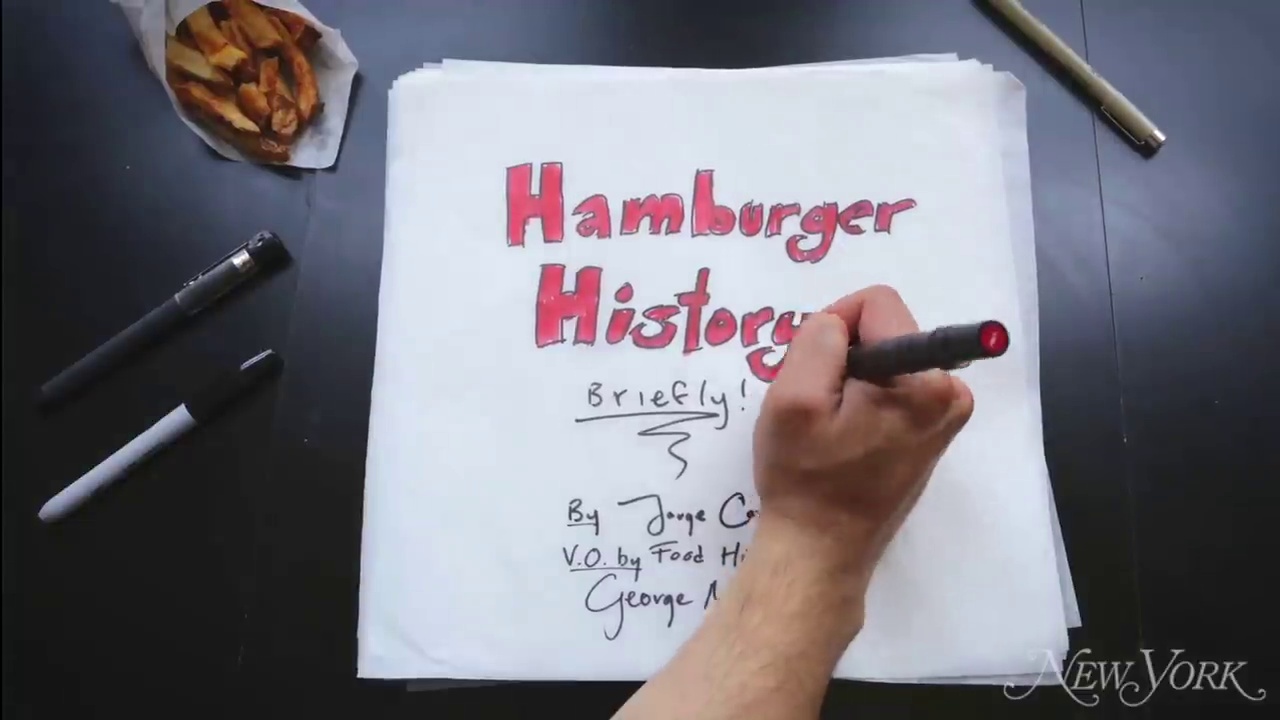 Hamburger
History
Briefly!
By Jorge
V.O. by Food
George
NEW YORK